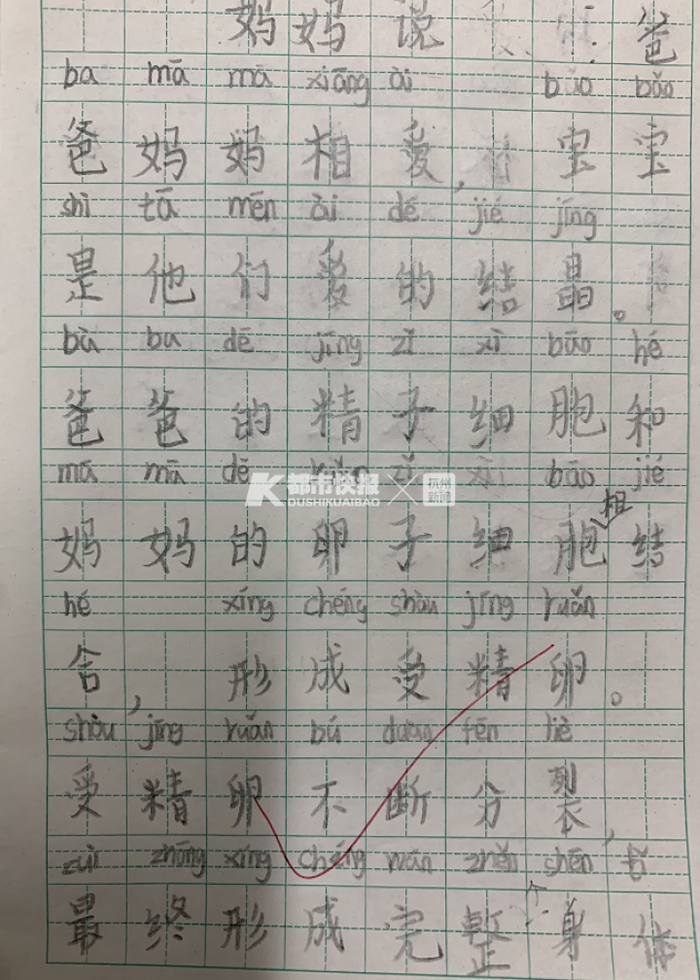 妈妈说 爸
ba mā mā xiāng ài bǎo bǎo
爸妈妈相爱，宝宝
shì tā mēn ài dé jié jīng
是他们爱的结晶。
bà ba dē jīng zǐ xì bāo hé
爸爸的精子细胞和
mā mā dē luǎn zǐ xì bāo jié
K都市快报 × 杭州新闻
DUSHIKUAIBAO
相
妈妈的卵子细胞结
hé xíng chéng shòu jīng ruǎn
合，形成受精卵。
shòu jīng ruǎn bú duàn fēn liè
受精卵不断分裂，
zuì zhōng xíng chéng wán zhěn shēn tǐ
最终形成完整身体